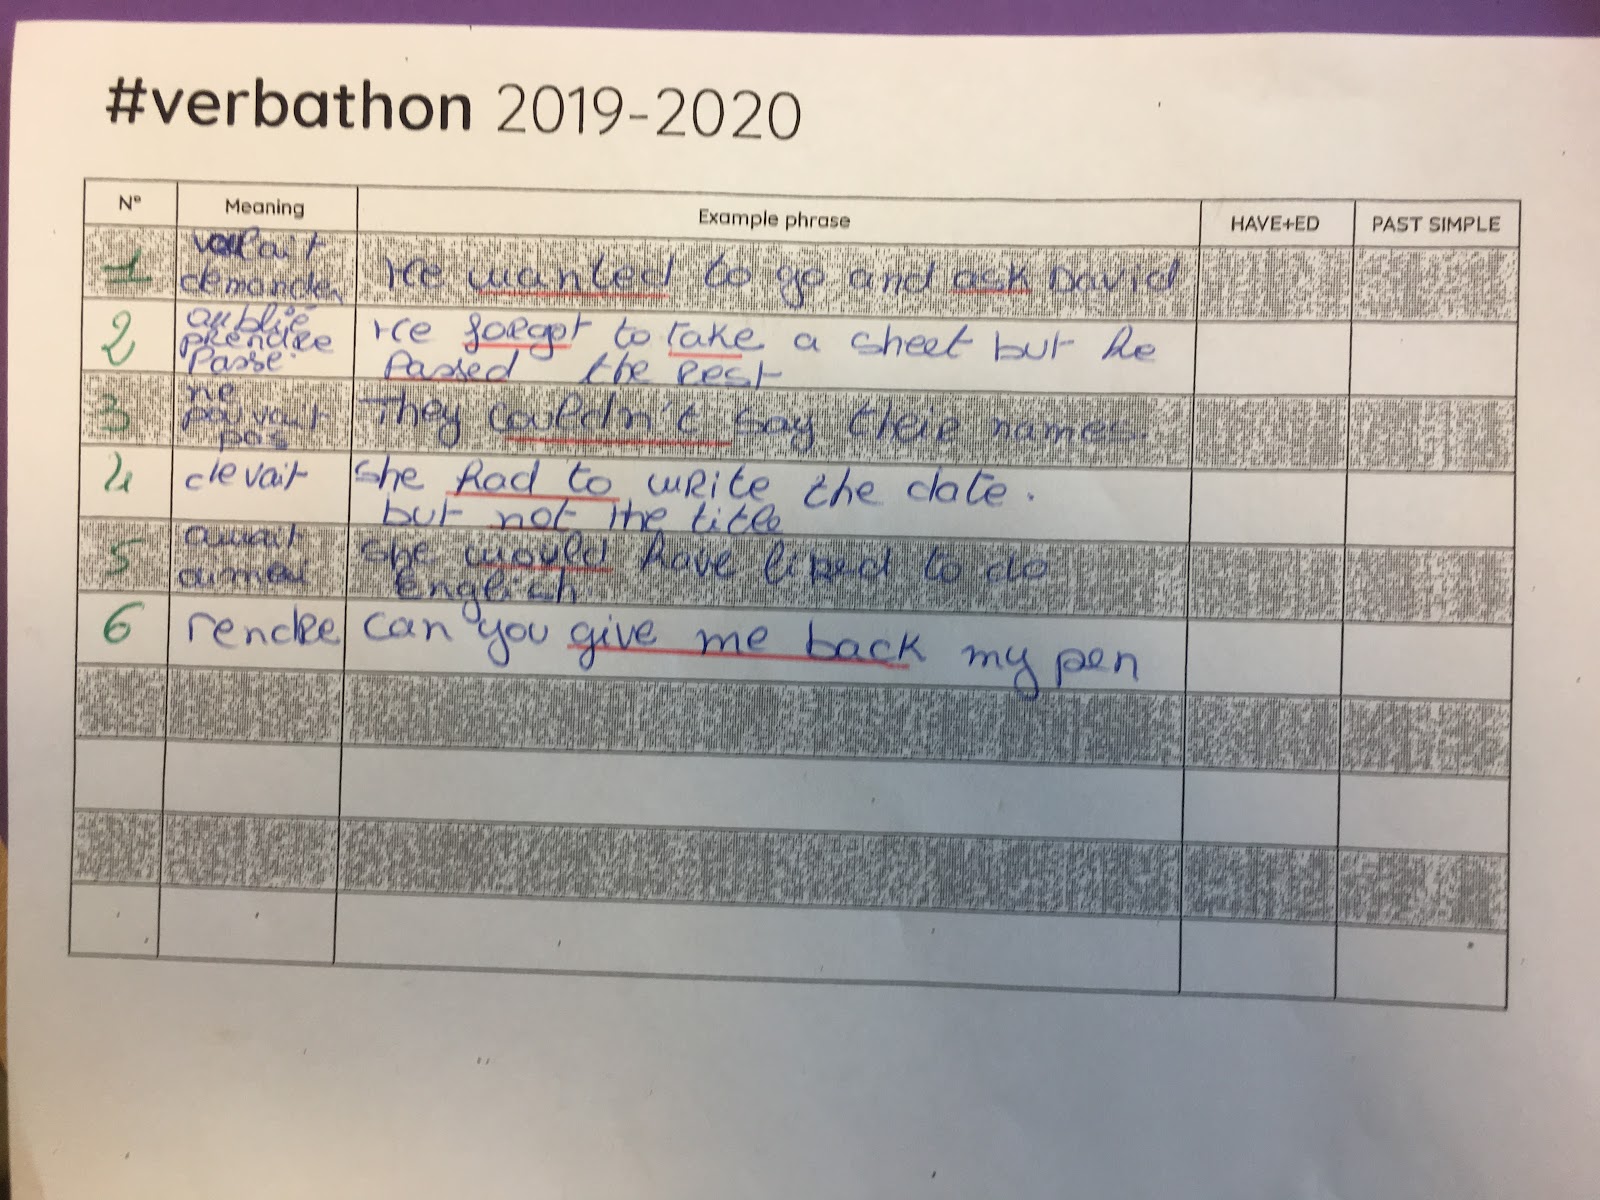 #verbathon 2019-2020
N° Meaning Example phrase HAVE+ED PAST SIMPLE
1 voulait
demander He wanted to go and ask David
2 oublié
prendre He forgot to take a sheet but he
passé passed the rest
3 ne
pouvait They couldn't say their names.
pas
4 devait She had to write the date.
but not the title
5 aurait She would have liked to do
aimer English.
6 rendre can you give me back my pen